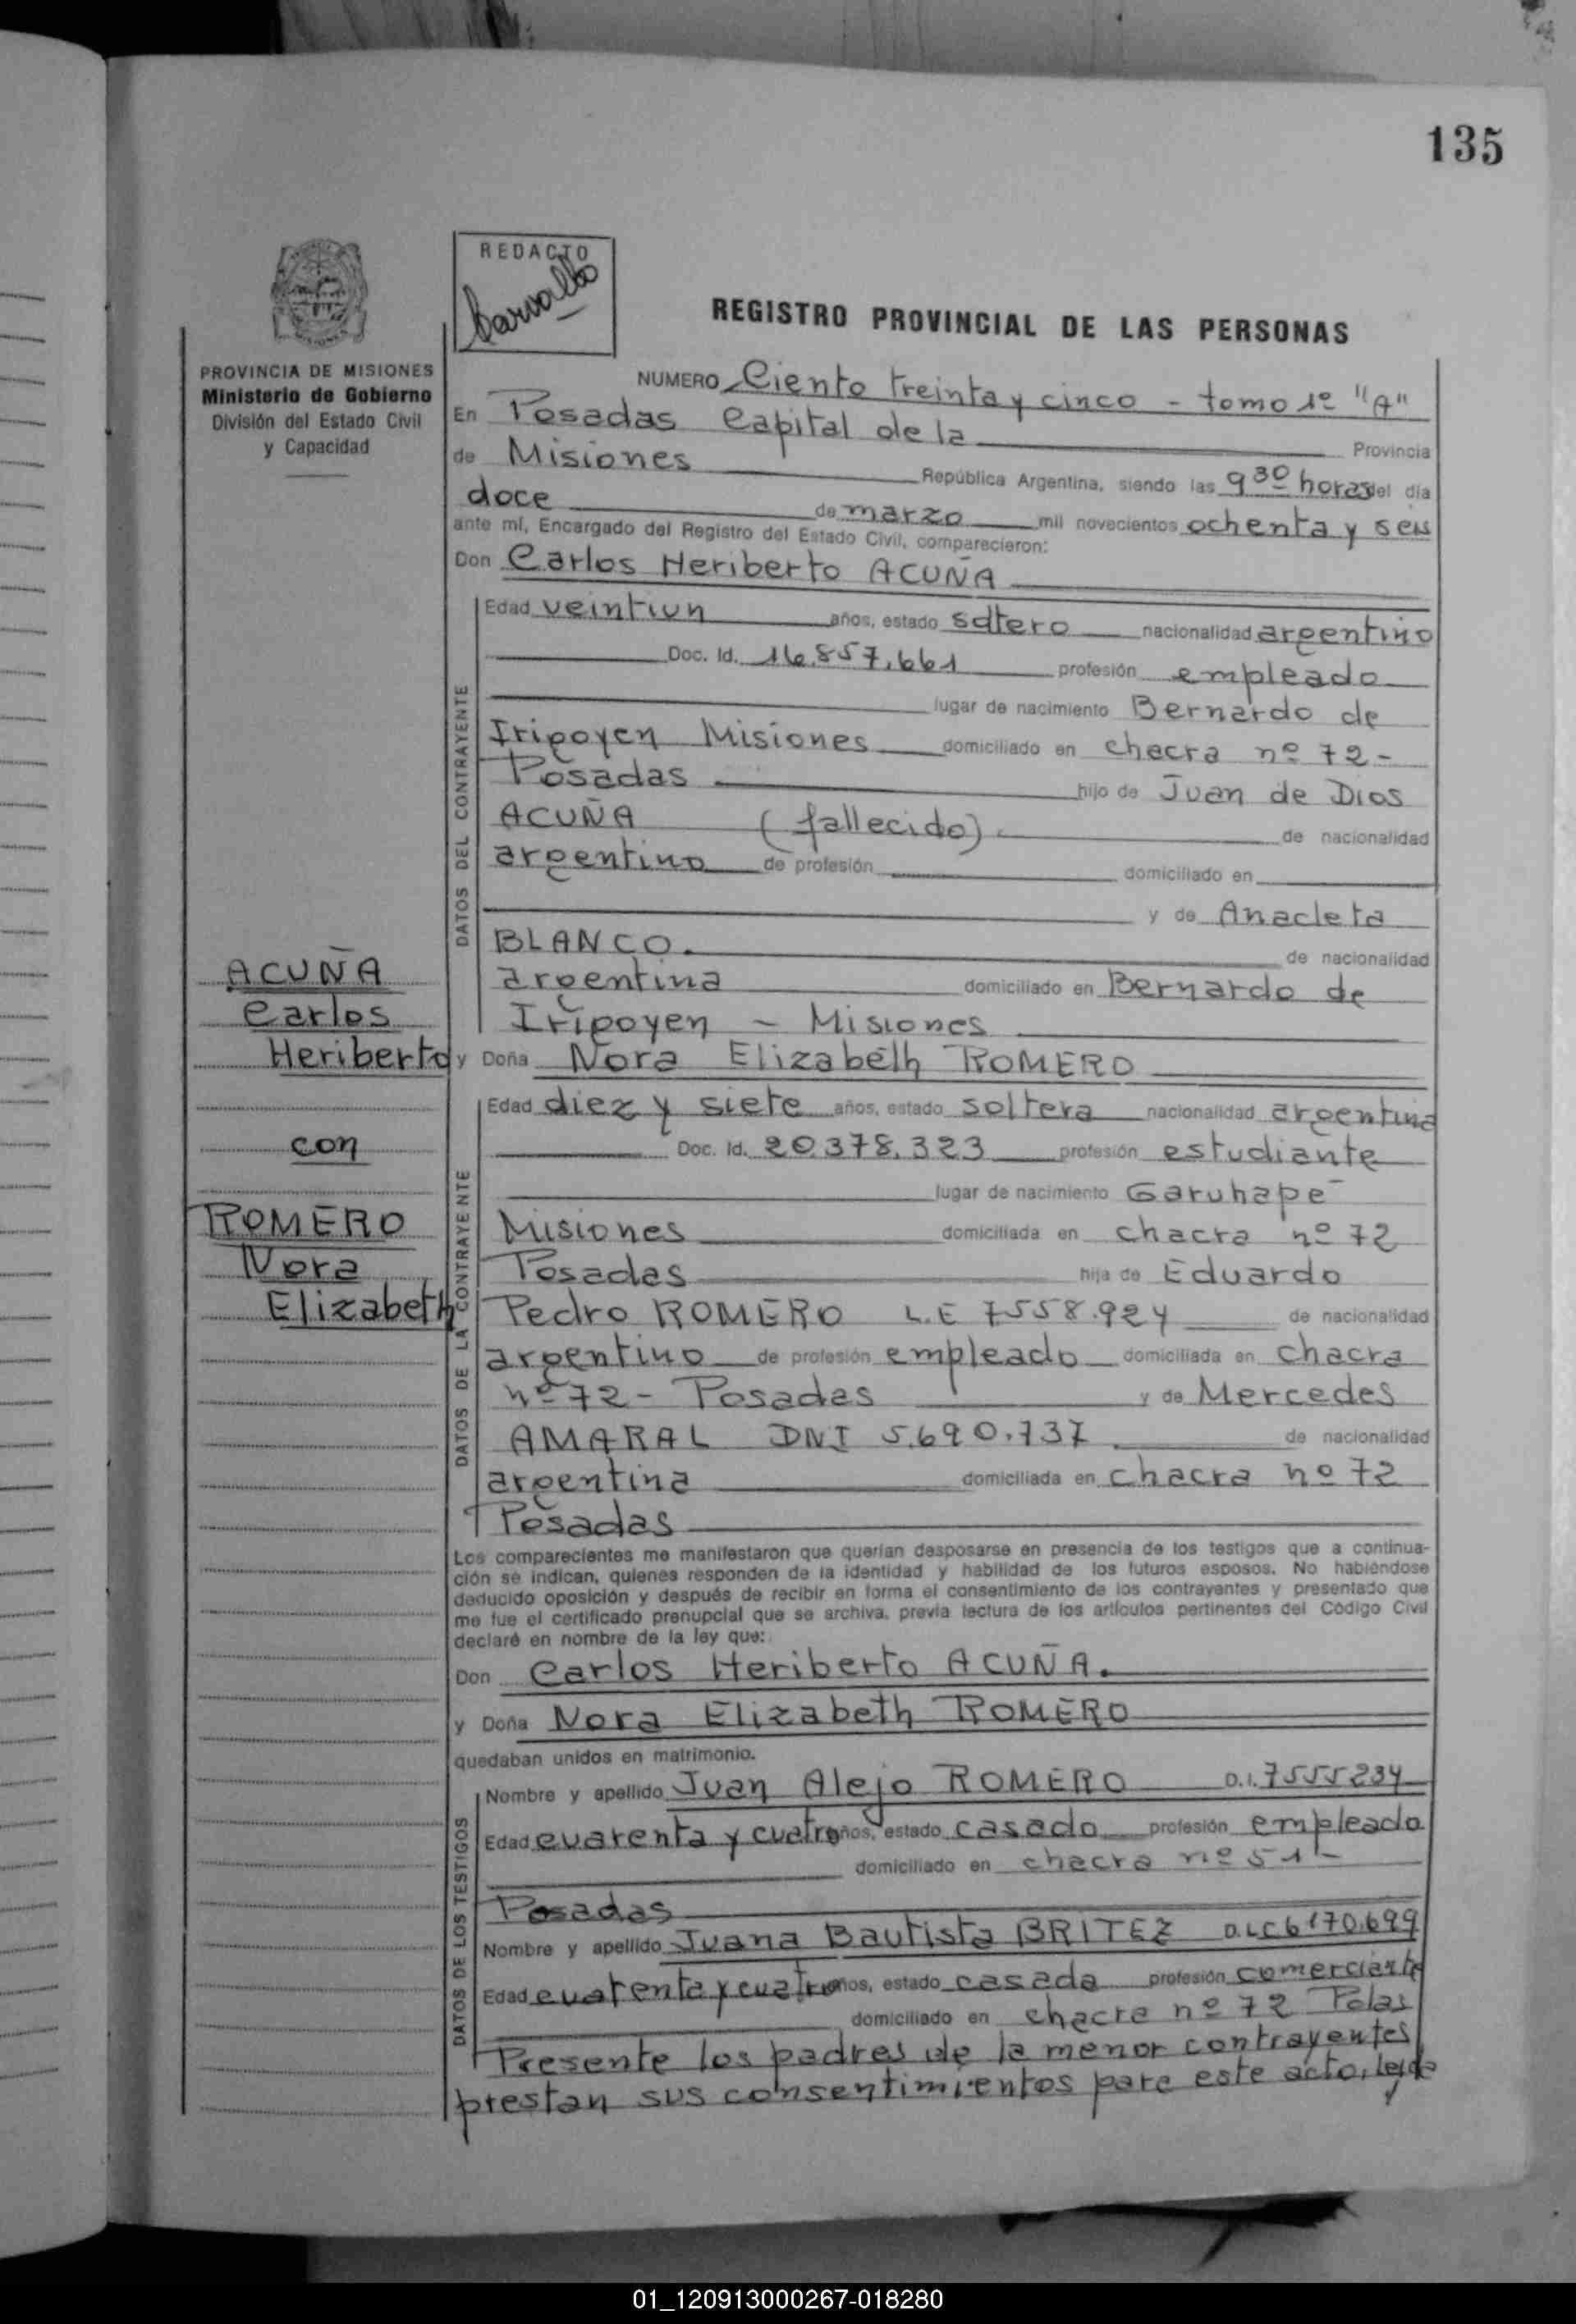 135
REDACTO
Carvallo
REGISTRO PROVINCIAL DE LAS PERSONAS
PROVINCIA DE MISIONES
Ministerio de Gobierno
División del Estado Civil
y Capacidad
NUMERO Ciento treinta y cinco - tomo 1º "A"
En Posadas Capital de la Provincia
de Misiones República Argentina, siendo las 9 30 horas del día
doce de marzo mil novecientos ochenta y seis
ante mí, Encargado del Registro del Estado Civil, comparecieron:
Don Carlos Heriberto ACUÑA
DATOS DEL CONTRAYENTE
Edad veintiun años, estado soltero nacionalidad argentino
Doc. Id. 16.857.661 profesión empleado
lugar de nacimiento Bernardo de
Irigoyen Misiones domiciliado en chacra nº 72 -
Posadas hijo de Juan de Dios
ACUÑA (fallecido). de nacionalidad
argentino de profesión domiciliado en
y de Anacleta
BLANCO. de nacionalidad
argentina domiciliado en Bernardo de
Irigoyen - Misiones
ACUÑA
Carlos
Heriberto
con
ROMERO
Nora
Elizabeth
y Doña Nora Elizabéth ROMERO
DATOS DE LA CONTRAYENTE
Edad diez y siete años, estado soltera nacionalidad argentina
Doc. Id. 20.378.323 profesión estudiante
lugar de nacimiento Garuhape -
Misiones domiciliada en chacra nº 72
Posadas hija de Eduardo
Pedro ROMERO L.E 7558.924 de nacionalidad
argentino de profesión empleado domiciliada en chacra
nº 72 - Posadas y de Mercedes
AMARAL DNI 5.690.737 de nacionalidad
argentina domiciliada en chacra nº 72
Posadas
Los comparecientes me manifestaron que querían desposarse en presencia de los testigos que a continua-
ción se indican, quienes responden de la identidad y habilidad de los futuros esposos. No habiéndose
deducido oposición y después de recibir en forma el consentimiento de los contrayentes y presentado que
me fue el certificado prenupcial que se archiva, previa lectura de los artículos pertinentes del Código Civil
declaré en nombre de la ley que:
Don Carlos Heriberto ACUÑA.
y Doña Nora Elizabeth ROMERO
quedaban unidos en matrimonio.
DATOS DE LOS TESTIGOS
Nombre y apellido Juan Alejo ROMERO D.I. 7555234
Edad cuarenta y cuatro años, estado casado profesión empleado
domiciliado en chacra nº 51 -
Posadas
Nombre y apellido Juana Bautista BRITEZ D.LC 6170.699
Edad cuarenta y cuatro años, estado casada profesión comerciante
domiciliado en chacra nº 72 Pdas
Presente los padres de la menor contrayentes
prestan sus consentimientos para este acto, leída
01_120913000267-018280